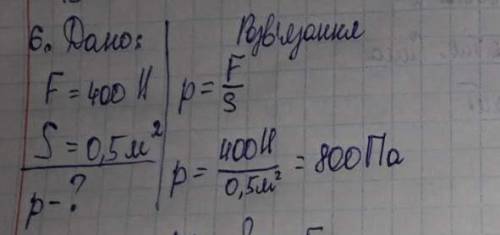 6. Дано:
F = 400 Н
S = 0,5 м²
p - ?
Розв'язання
p = F/S
p = 400Н/0,5м² = 800 Па